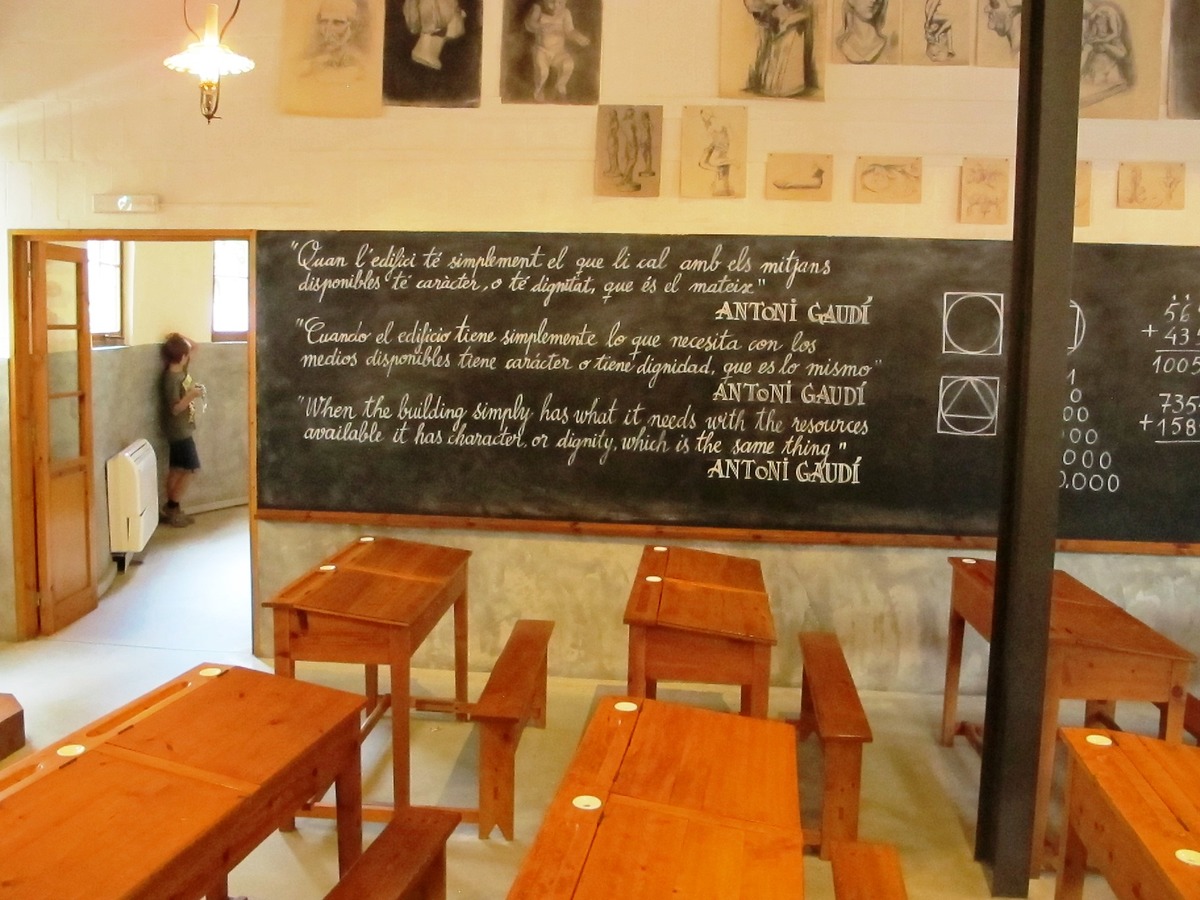 "Quan l'edifici té simplement el que li cal amb els mitjans
disponibles té caràcter, o té dignitat, que és el mateix"
ANTONI GAUDÍ
"Cuando el edificio tiene simplemente lo que necesita con los
medios disponibles tiene carácter o tiene dignidad, que es lo mismo"
ANTONI GAUDÍ
"When the building simply has what it needs with the resources
available it has character, or dignity, which is the same thing"
ANTONI GAUDÍ
1
00
000
0000
0.000
56
+ 43
1005
735
+ 158